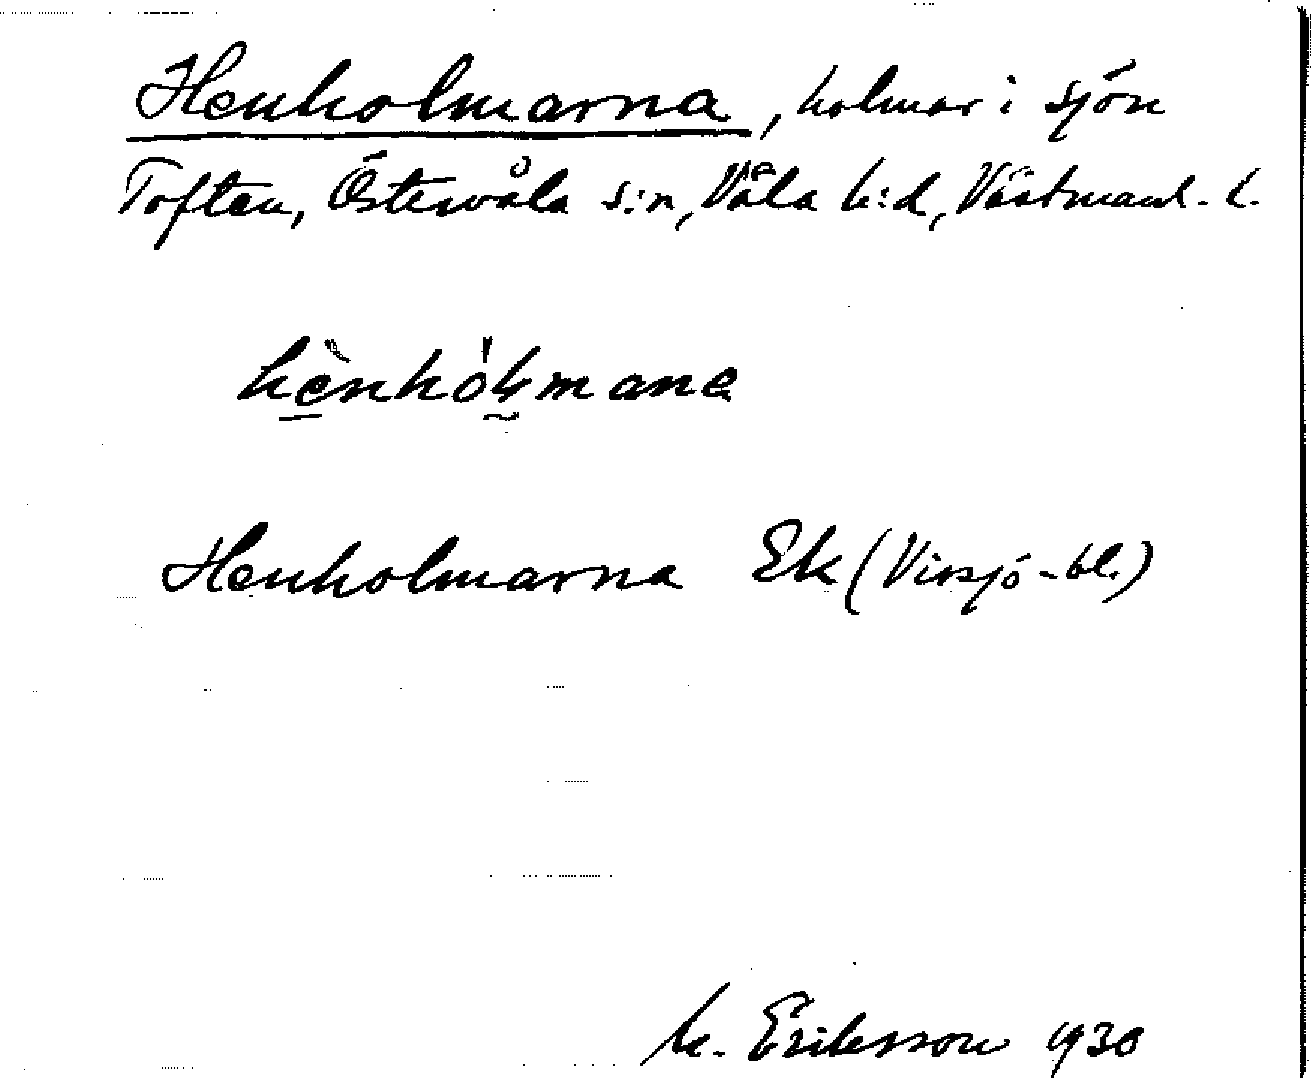 Henholmarna, holmar i sjön
Toften, Östervåla s:n, Våla h:d, Västmanl. l.
hènhól̬mane
Henholmarna Ek (Virsjö-bl.)
M. Eriksson 1930